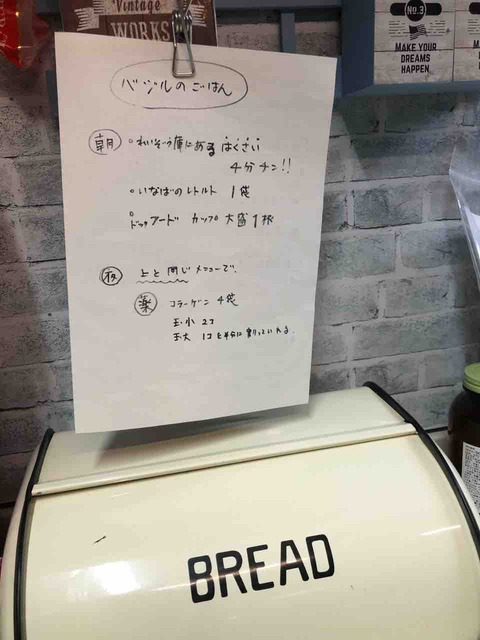 Vintage
WORKS
No.3
MAKE YOUR
DREAMS
HAPPEN
MAKE
DRE
HAP
バジルのごはん
朝 ○れいぞう庫にある はくさい
4分チン!!
○いなばのレトルト 1袋
○ドッグフード カップ 大盛1杯
夜 上と同じメニューで。
薬 コラーゲン 4袋
玉・小 2コ
玉・大 1コを半分に割っていれる。
BREAD